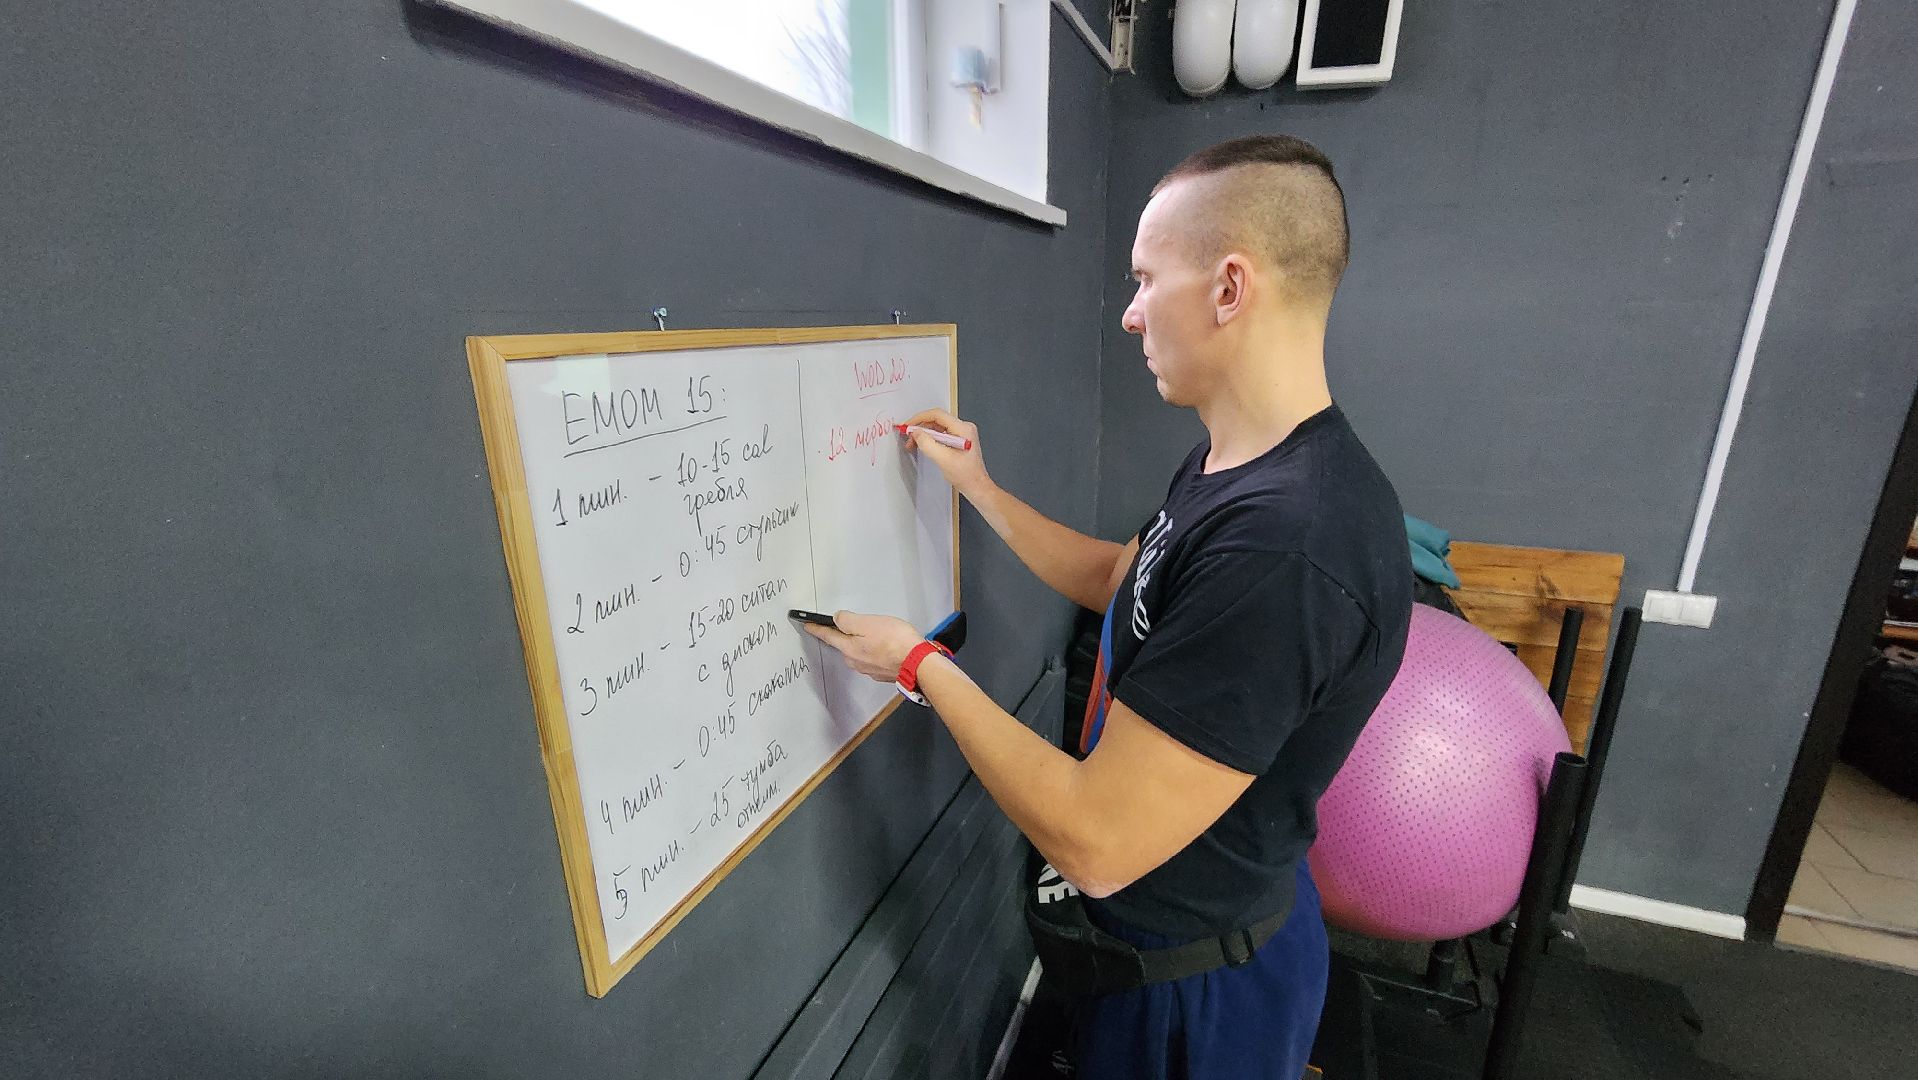 EMOM 15:
1 мин. - 10-15 cal
гребля
2 мин. - 0:45 стульчик
3 мин. - 15-20 ситап
с диском
4 мин. - 0:45 скакалка
5 мин. - 25 тумба
отжим.
WOD 20:
12 медбол